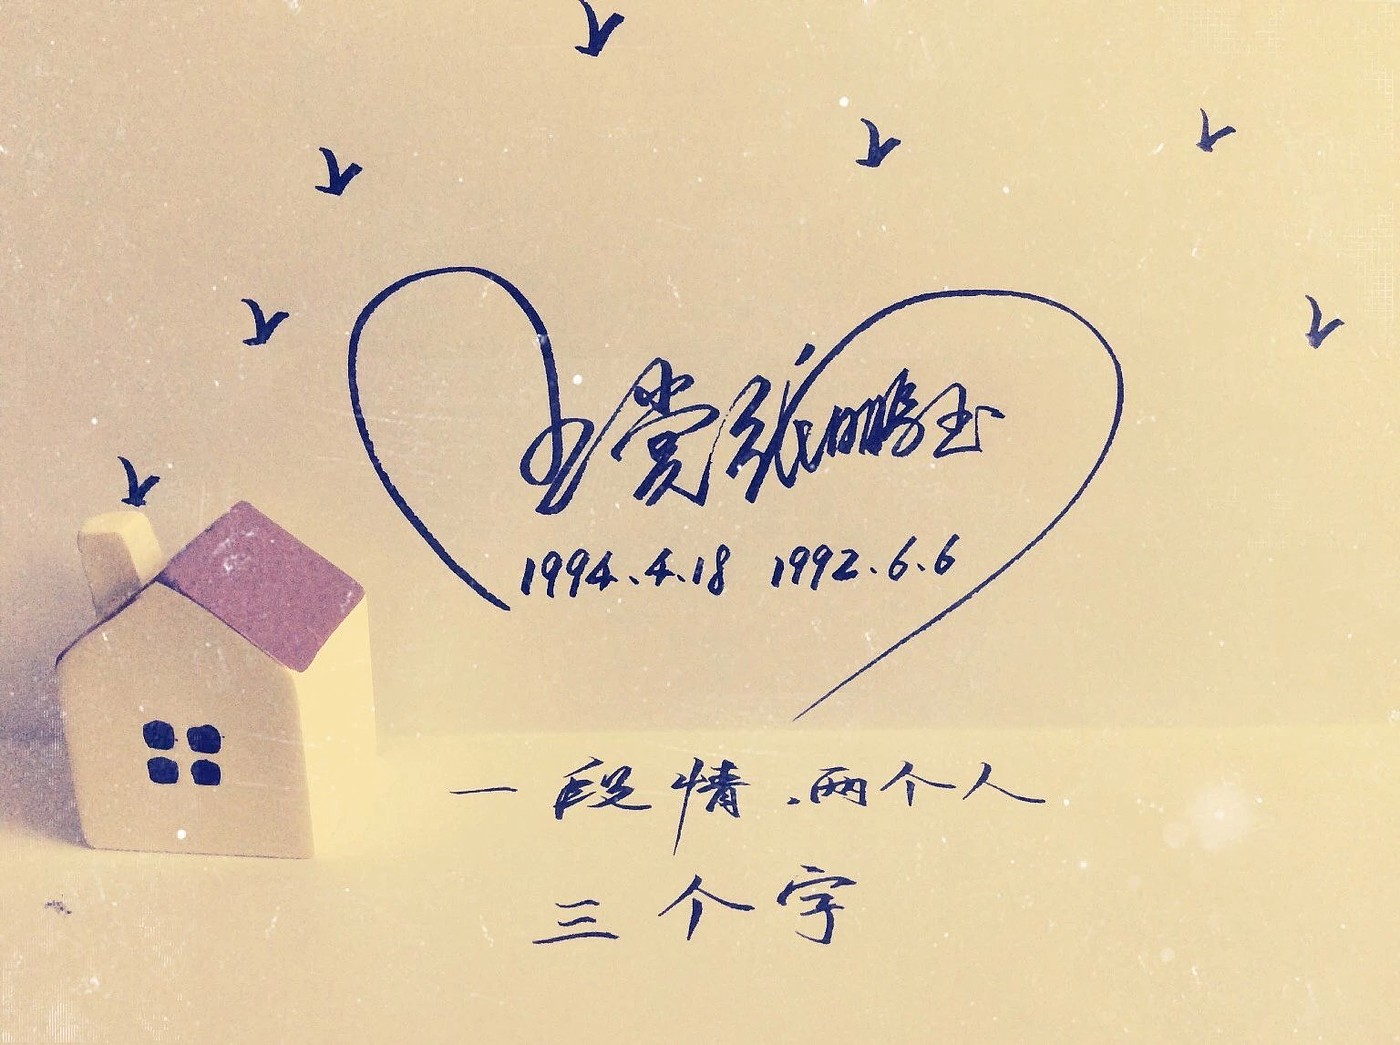 张鹏玉
1994.4.18 1992.6.6
一段情.两个人
三个字